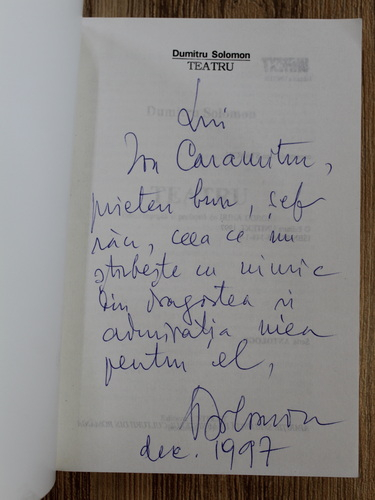 Dumitru Solomon
TEATRU
Lui
Ion Caramitru,
prieten bun, șef
rău, ceea ce nu
știrbește cu nimic
din dragostea și
admirația mea
pentru el,
DSolomon
dec. 1997